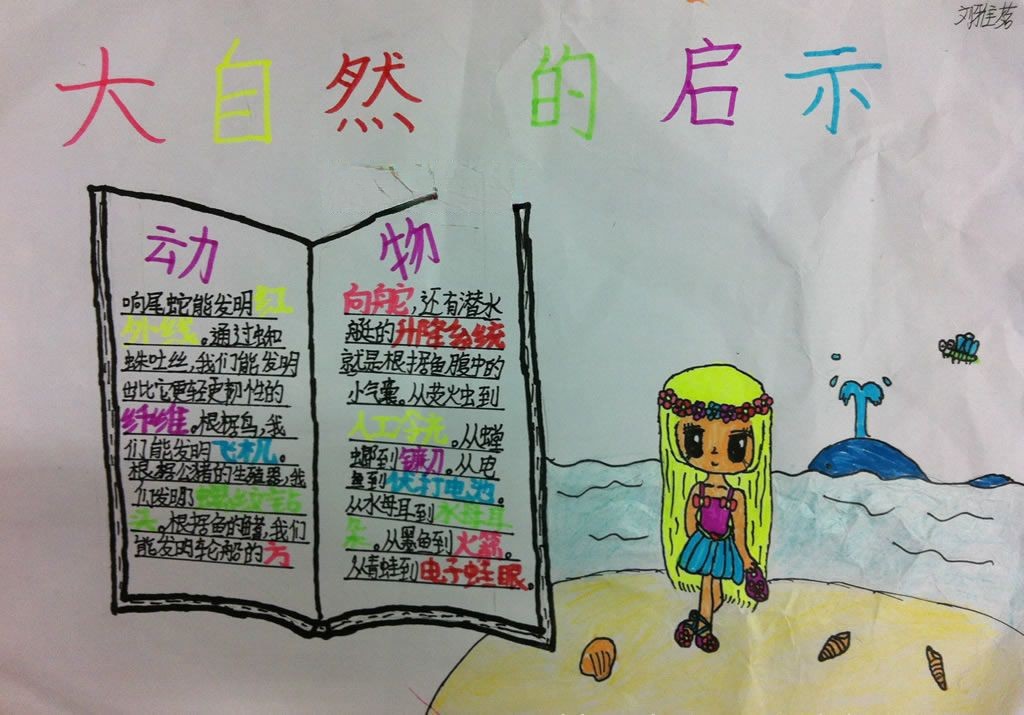 刘雅
大自然的启示
动 物
响尾蛇能发明红
外线。通过蜘
蛛吐丝,我们能发明
出比它更轻更韧性的
纤维。根据鸟,我
们能发明飞机。
根据公猪的生殖器,我
们发明钻
头。根据鱼的鳍,我们
能发明轮船的方
向舵,还有潜水
艇的升降系统
就是根据鱼腹中的
小气囊。从萤火虫到
人工冷光。从螳
螂到镰刀。从电
鱼到伏打电池。
从水母耳到水母耳
朵。从墨鱼到火箭。
从青蛙到电子蛙眼。